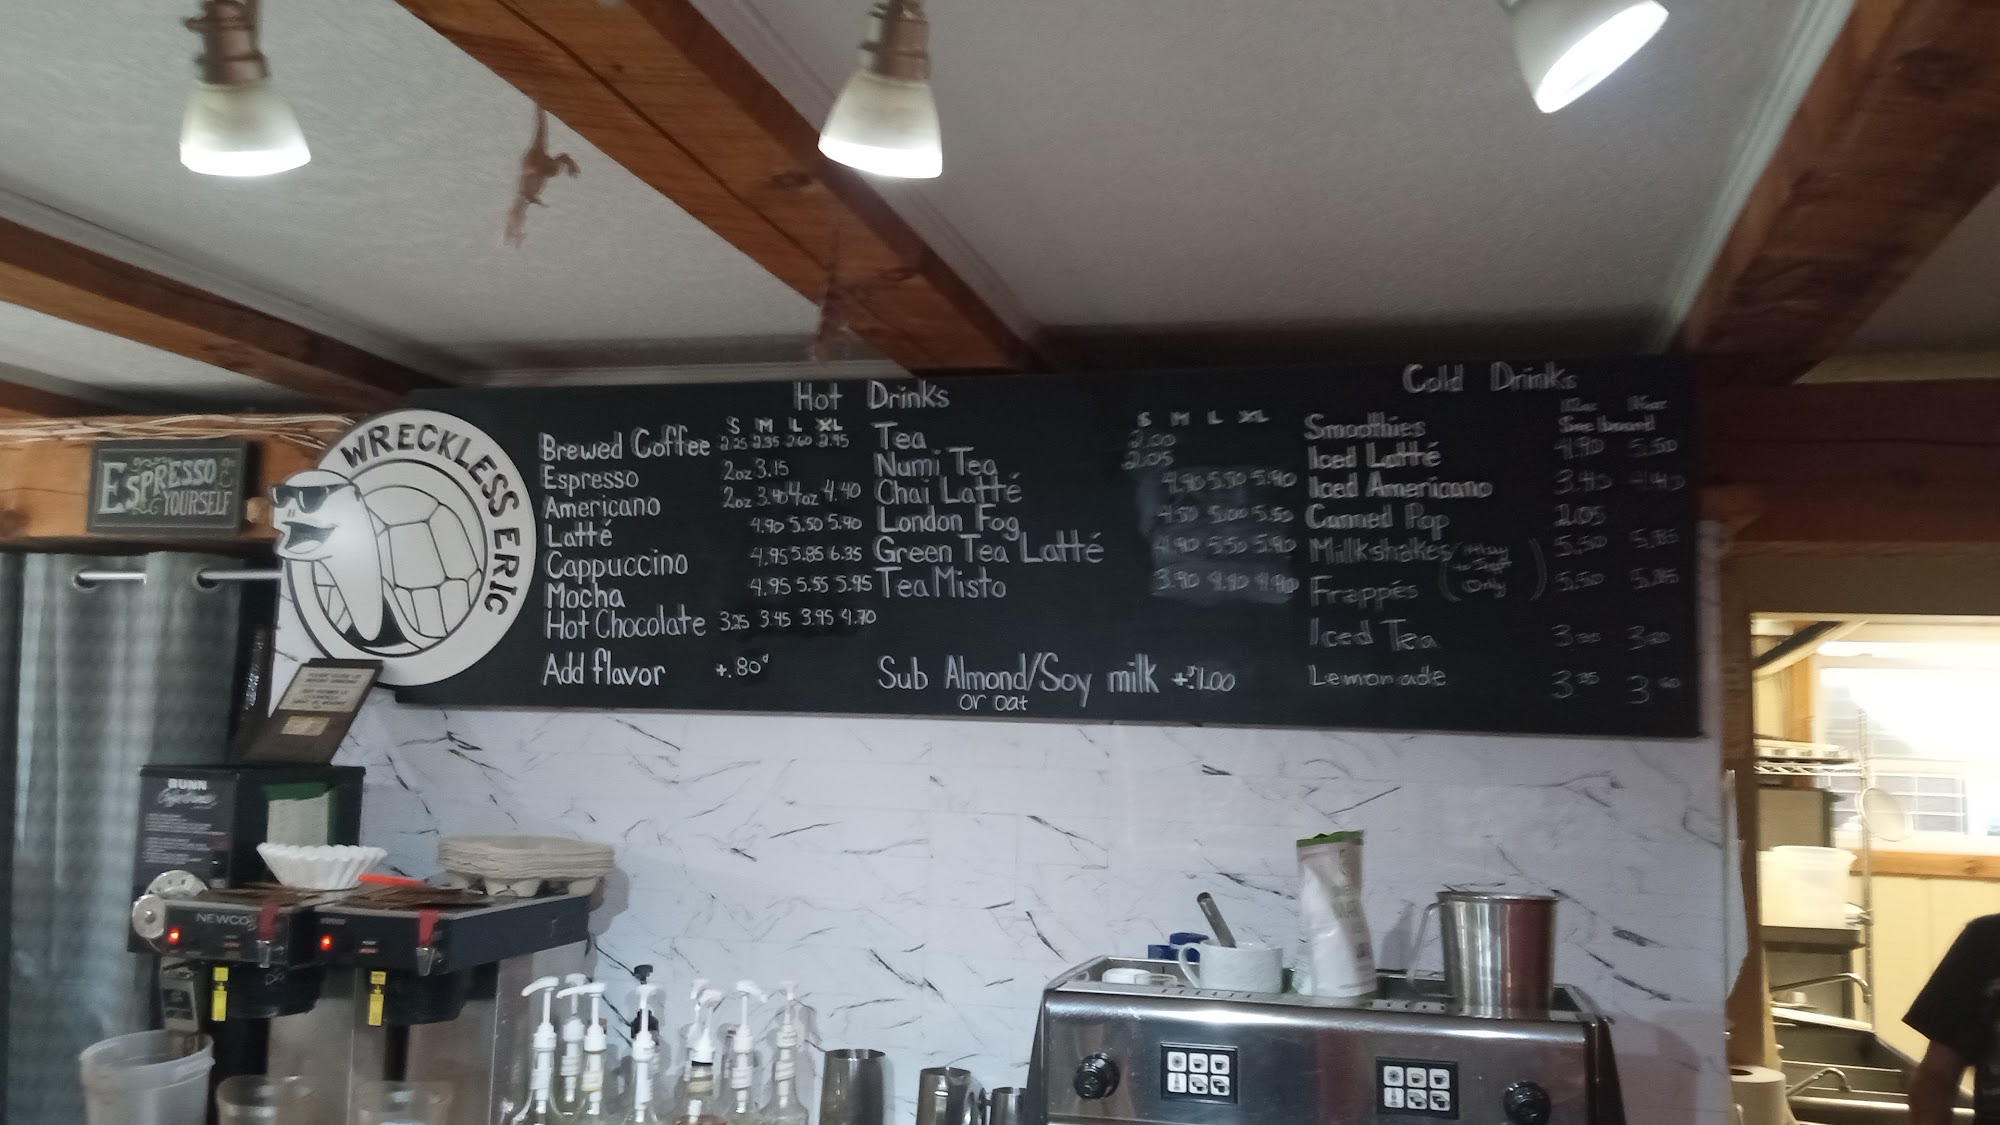 WRECKLESS ERIC
ESPRESSO
YOURSELF
Hot Drinks
S M L XL
Brewed Coffee 2.25 2.35 2.60 2.95
Espresso 2oz 3.15
Americano 2oz 3.90 4oz 4.40
Latté 4.90 5.50 5.90
Cappuccino 4.95 5.85 6.35
Mocha 4.95 5.55 5.95
Hot Chocolate 3.25 3.45 3.95 4.70
Add flavor +.80¢
S M L XL
Tea 2.00
Numi Tea 2.05
Chai Latté 4.90 5.50 5.90
London Fog 4.50 5.00 5.50
Green Tea Latté 4.90 5.50 5.90
Tea Misto 3.90 4.40 4.90
Sub Almond/Soy milk +$1.00
or oat
Cold Drinks
12oz 16oz
Smoothies See board
Iced Latté 4.90 5.50
Iced Americano 3.40 4.40
Canned Pop 2.05
Milkshakes (May to Sept Only) 5.50 5.85
Frappés 5.50 5.85
Iced Tea
Lemonade
BUNN
NEWCO